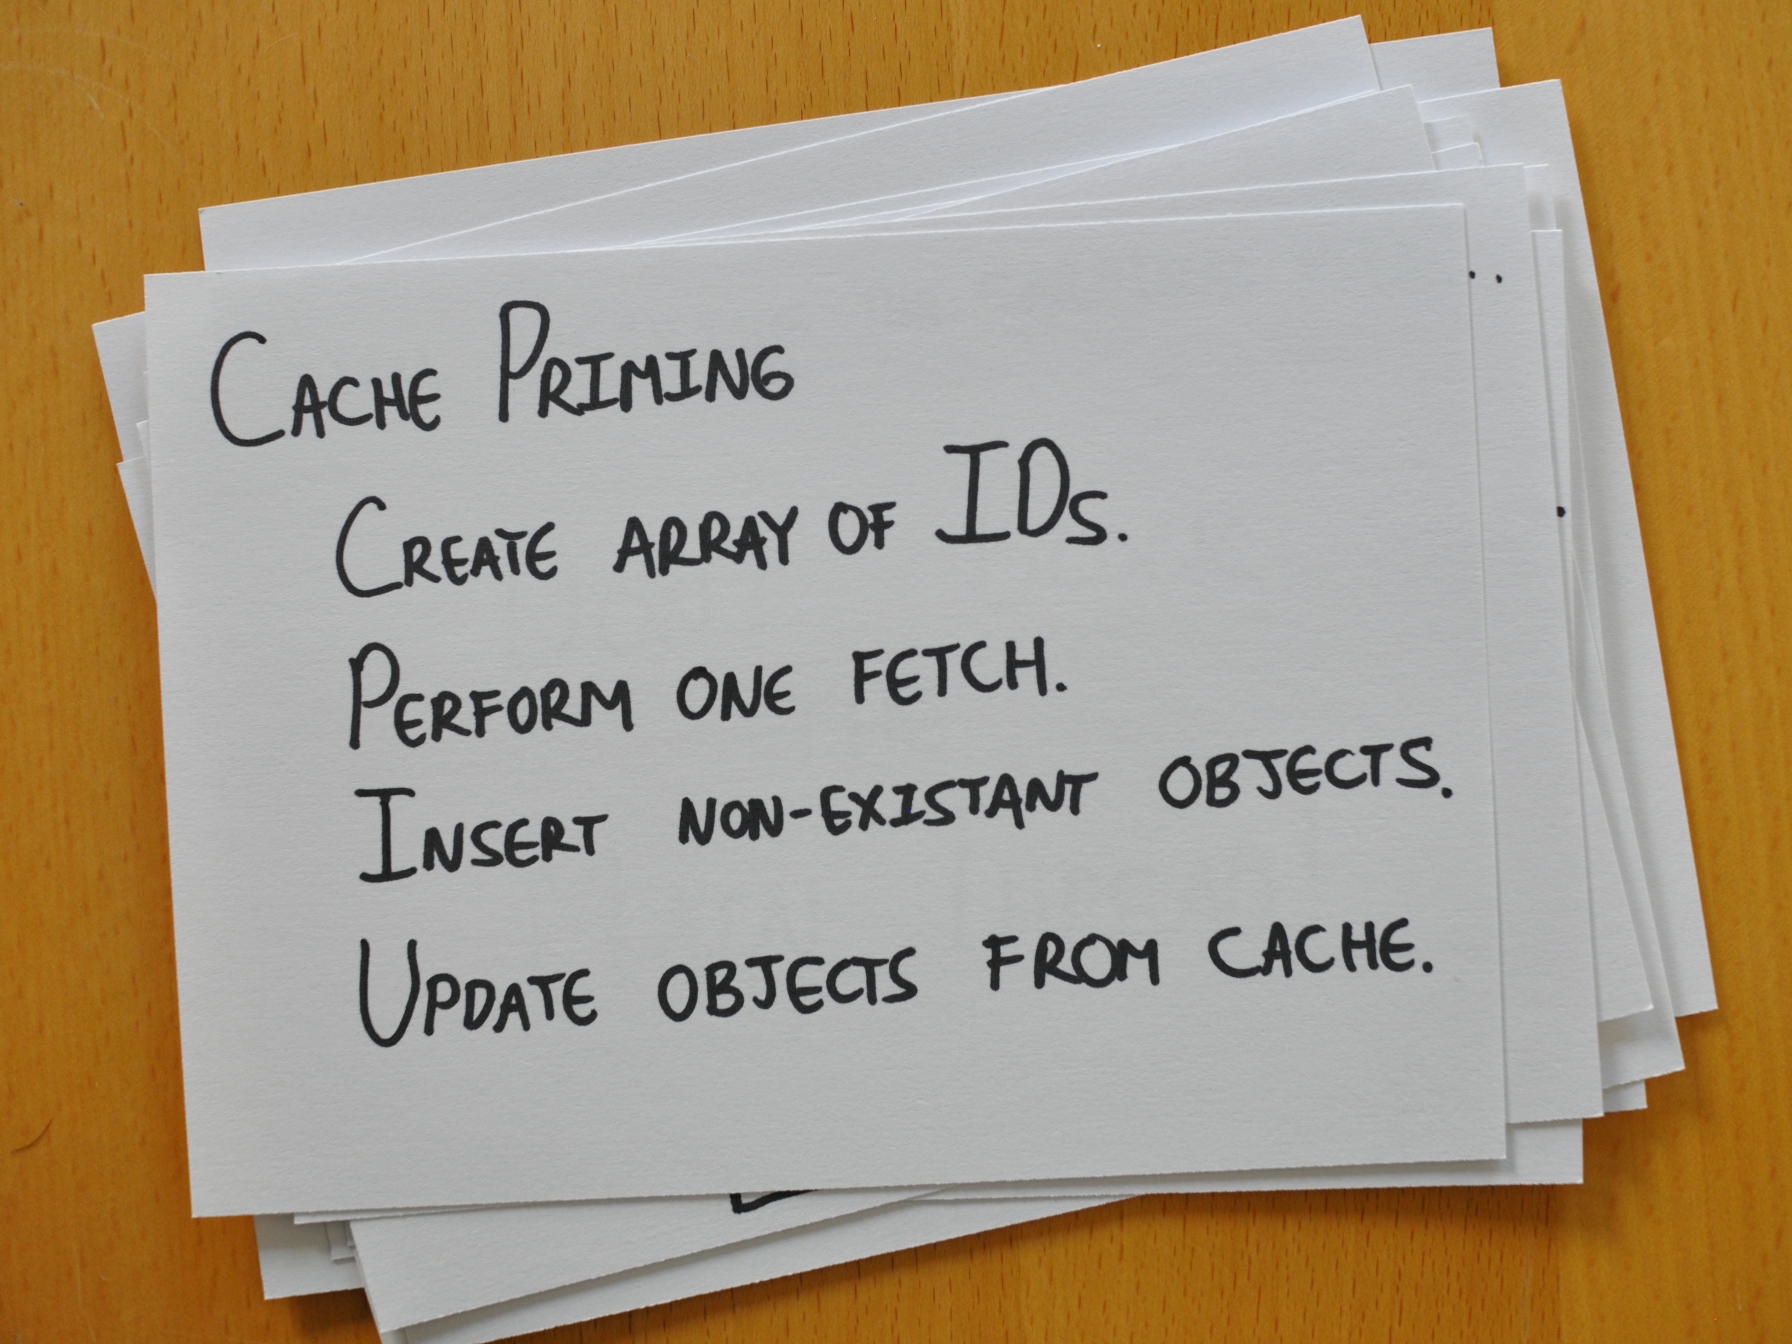 Cache Priming
Create array of IDs.
Perform one fetch.
Insert non-existant objects.
Update objects from cache.